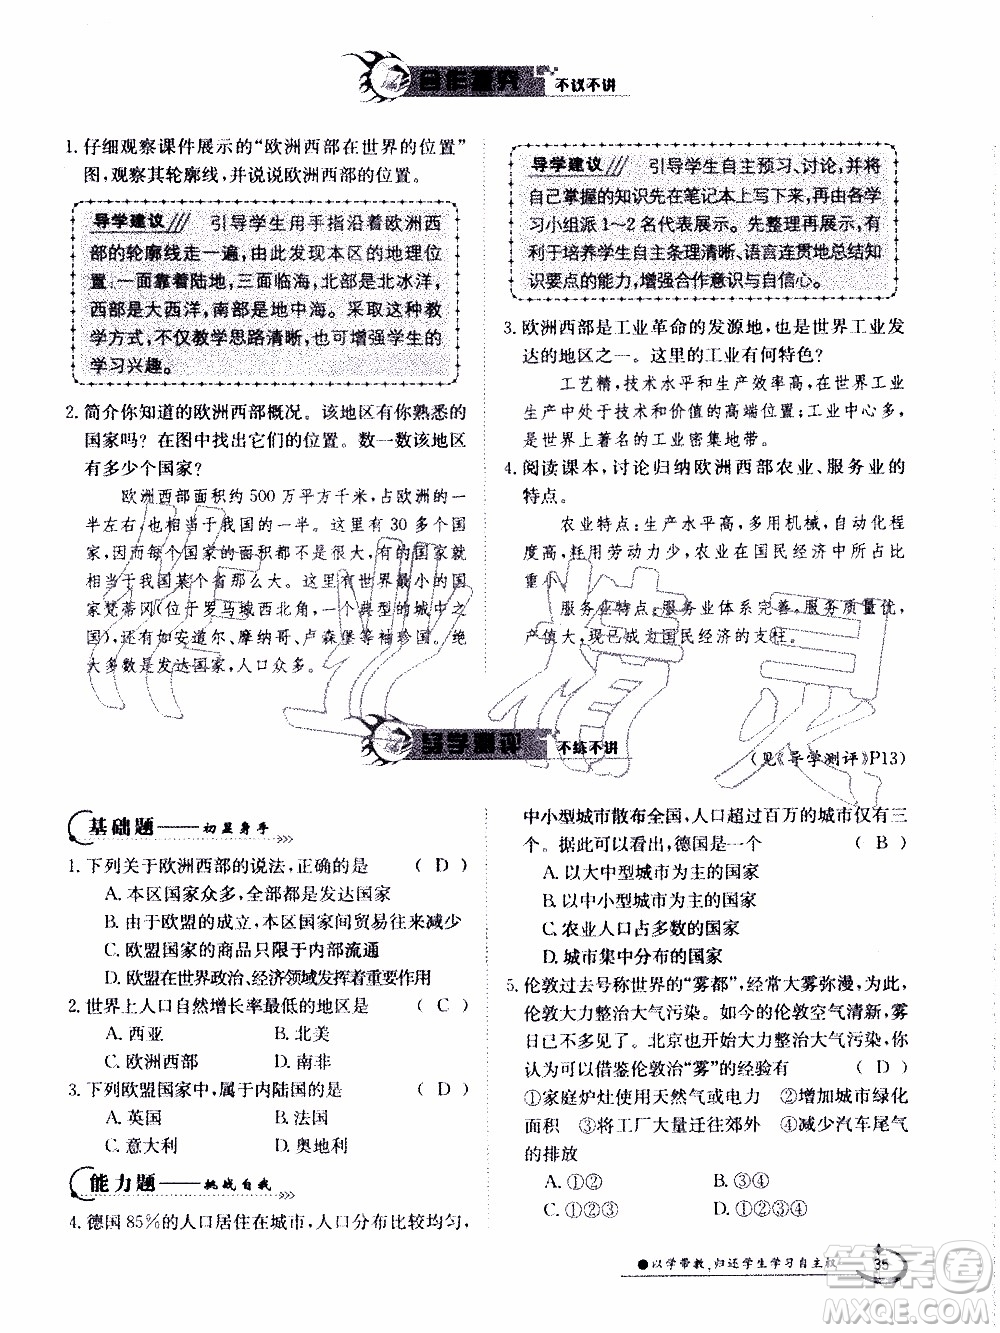 合作童究 不议不讲
1. 仔细观察课件展示的“欧洲西部在世界的位置”
图,观察其轮廓线,并说说欧洲西部的位置。
导学建议 引导学生用手指沿着欧洲西
部的轮廓线走一遍,由此发现本区的地理位
置。一面靠着陆地,三面临海,北部是北冰洋,
西部是大西洋,南部是地中海。采取这种教
学方式,不仅教学思路清晰,也可增强学生的
学习兴趣。
2. 简介你知道的欧洲西部概况。该地区有你熟悉的
国家吗?在图中找出它们的位置。数一数该地区
有多少个国家?
欧洲西部面积约 500 万平方千米,占欧洲的一
半左右,也相当于我国的一半。这里有 30 多个国
家,平均每个国家的面积不是很大,有的国家甚至
相当于我国某个省那么大。这里有世界最小的国
家梵蒂冈(位于罗马城西北角,一个典型的城中之
国),还有如安道尔、摩纳哥、卢森堡等袖珍国。绝
大多数是发达国家,人口众多。
导学建议 引导学生自主预习、讨论,并将
自己掌握的知识先在笔记本上写下来,再由各学
习小组派 1～2 名代表展示。先整理再展示,有
利于培养学生自主条理清晰、语言连贯地总结知
识要点的能力,增强合作意识与自信心。
3. 欧洲西部是工业革命的发源地,也是世界工业发
达的地区之一。这里的工业有何特色?
工艺精,技术水平和生产效率高,在世界工业
生产中处于技术和价值的高端位置;工业中心多,
是世界上著名的工业密集地带。
4. 阅读课本,讨论归纳欧洲西部农业、服务业的
特点。
农业特点:生产水平高,多用机械,自动化程
度高,耗用劳动力少,农业在国民经济中所占比
重小。
服务业特点:服务业体系完善,服务质量优,
产值大,现已成为国民经济的支柱。
导学测评 不练不讲
(见《导学测评》P13)
基础题——初显身手
1. 下列关于欧洲西部的说法,正确的是 ( D )
A. 本区国家众多,全部都是发达国家
B. 由于欧盟的成立,本区国家间贸易往来减少
C. 欧盟国家的商品只限于内部流通
D. 欧盟在世界政治、经济领域发挥着重要作用
2. 世界上人口自然增长率最低的地区是 ( C )
A. 西亚 B. 北美
C. 欧洲西部 D. 南非
3. 下列欧盟国家中,属于内陆国的是 ( D )
A. 英国 B. 法国
C. 意大利 D. 奥地利
能力题——挑战自我
4. 德国 85%的人口居住在城市,人口分布比较均匀,
中小型城市散布全国,人口超过百万的城市仅有三
个。据此可以看出,德国是一个 ( B )
A. 以大中型城市为主的国家
B. 以中小型城市为主的国家
C. 农业人口占多数的国家
D. 城市集中分布的国家
5. 伦敦过去号称世界的“雾都”,经常大雾弥漫,为此
伦敦大力整治大气污染。如今的伦敦空气清新,雾
日已不多见。北京也开始大力整治大气污染,那么
可以借鉴伦敦治“雾”的经验有 ( D )
①家庭炉灶使用天然气或电力 ②增加城市绿化
面积 ③将工厂大量迁往郊外 ④减少汽车尾气
的排放
A. ①② B. ③④
C. ①②③ D. ①②③④
●以学带教,归还学生学习自主权
35
作业精灵
答案卷
MXQE.COM